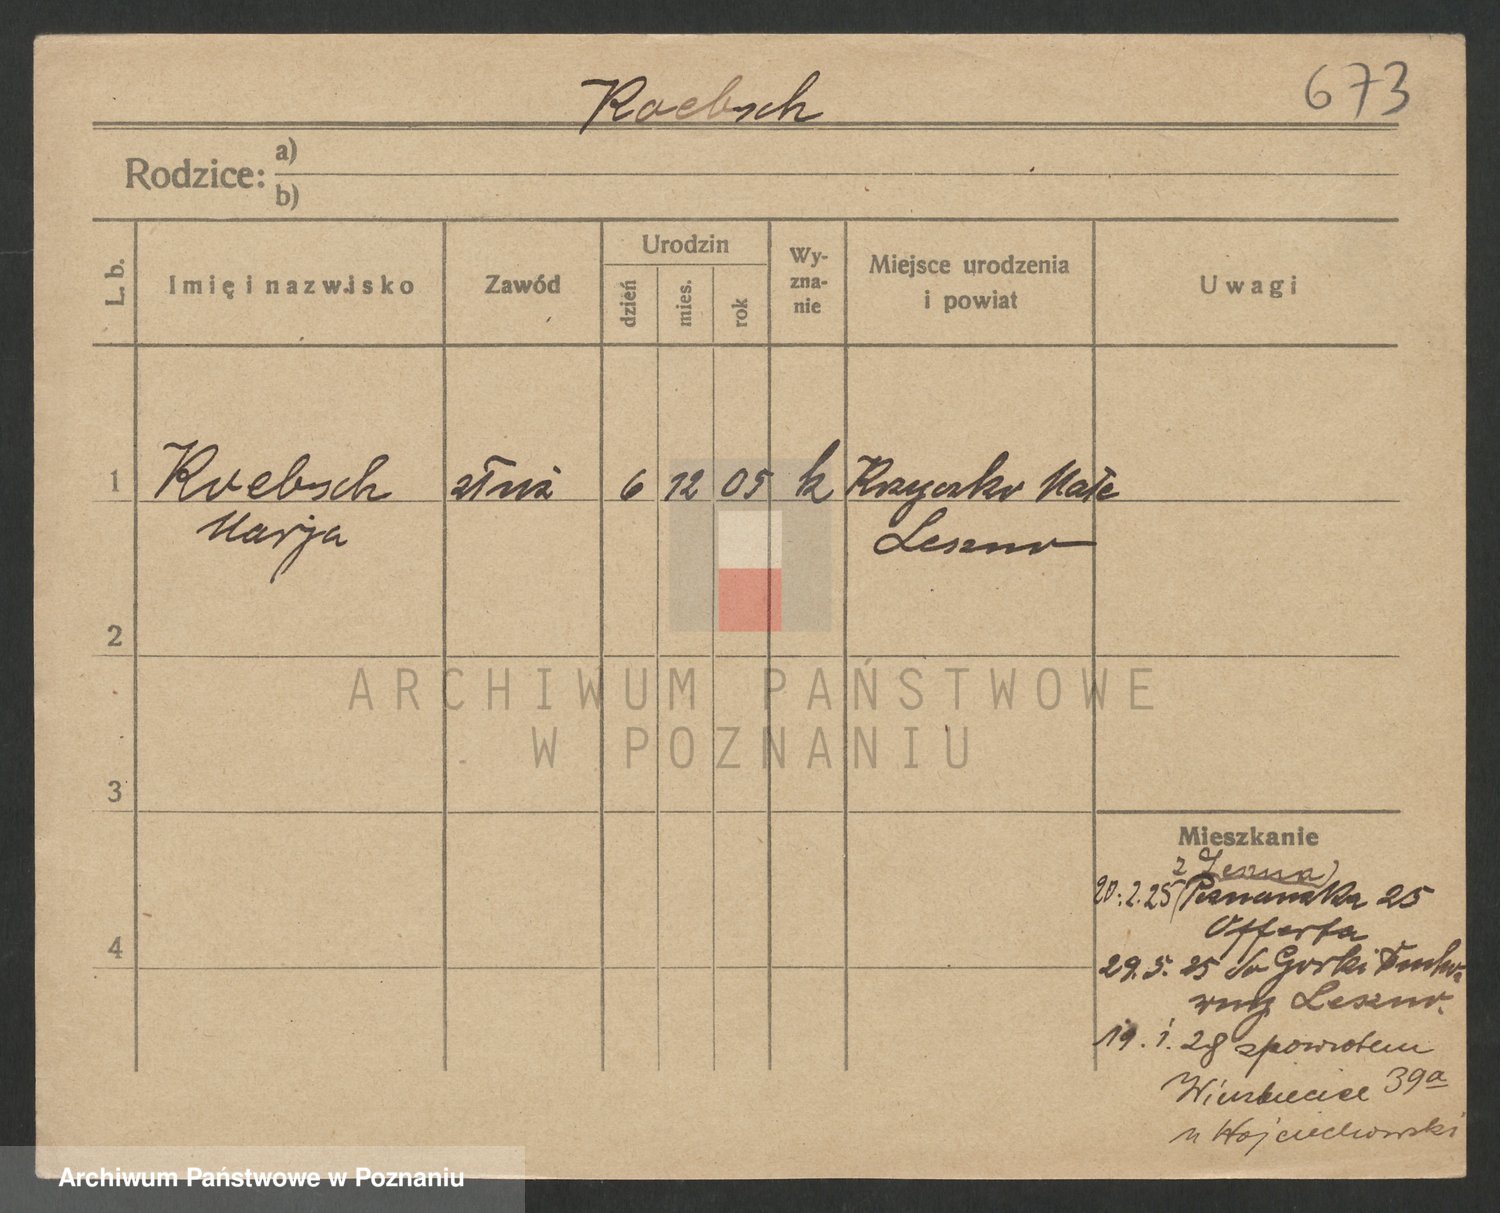 Roebsch
673
Rodzice:
a)
b)
L. b.
Imię i nazwisko
Zawód
Urodzin
dzień
mies.
rok
Wy-
zna-
nie
Miejsce urodzenia
i powiat
Uwagi
1
Roebsch
Marja
służ
6
12
05
k
Krzycko Małe
Leszno
2
3
4
Mieszkanie
z Leszna)
20.2.25 (Poznańska 25
Offerta
29.5.25 do Gorki
Leszno.
19.1.28 spowrotem
Wierzbięcice 39a
u Wojciechowski
ARCHIWUM PAŃSTWOWE
W POZNANIU
Archiwum Państwowe w Poznaniu